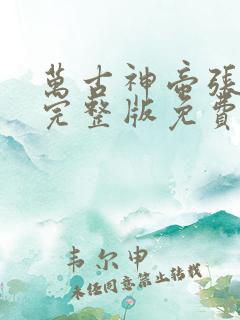 萬古神帝張
完整版免費
韦尔申
未经同意禁止转载